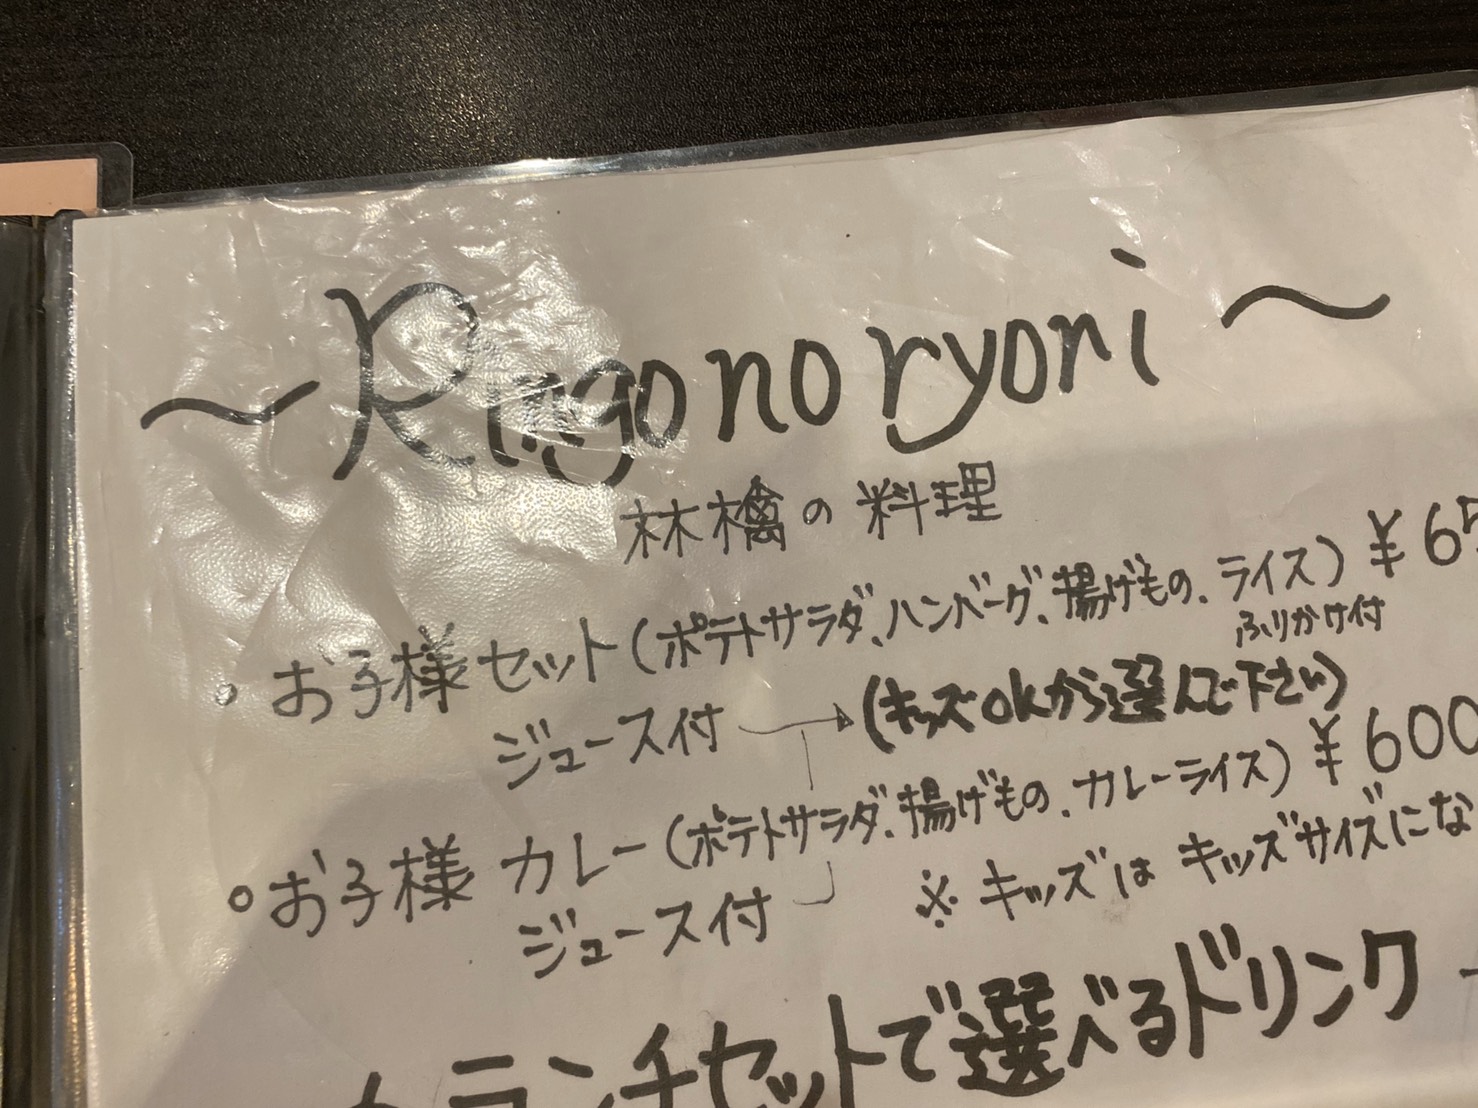 ～Ringo no ryori～
林檎の料理
。お子様セット(ポテトサラダ、ハンバーグ、揚げもの、ライス) ¥65
ふりかけ付
ジュース付 → (キッズokから選んで下さい)
。お子様 カレー(ポテトサラダ、揚げもの、カレーライス) ¥600
ジュース付 ※ キッズは キッズサイズにな
ランチセットで選べるドリンク